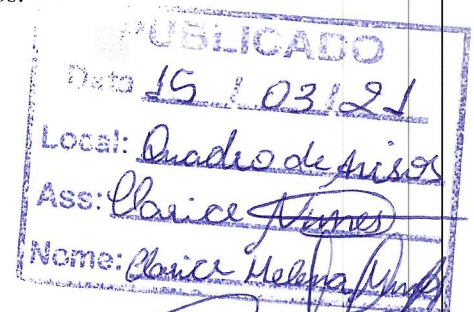 PUBLICADO
Data 15 / 03 / 21
Local: Quadro de Avisos
Ass: Clarice Nunes
Nome: Clarice Helena